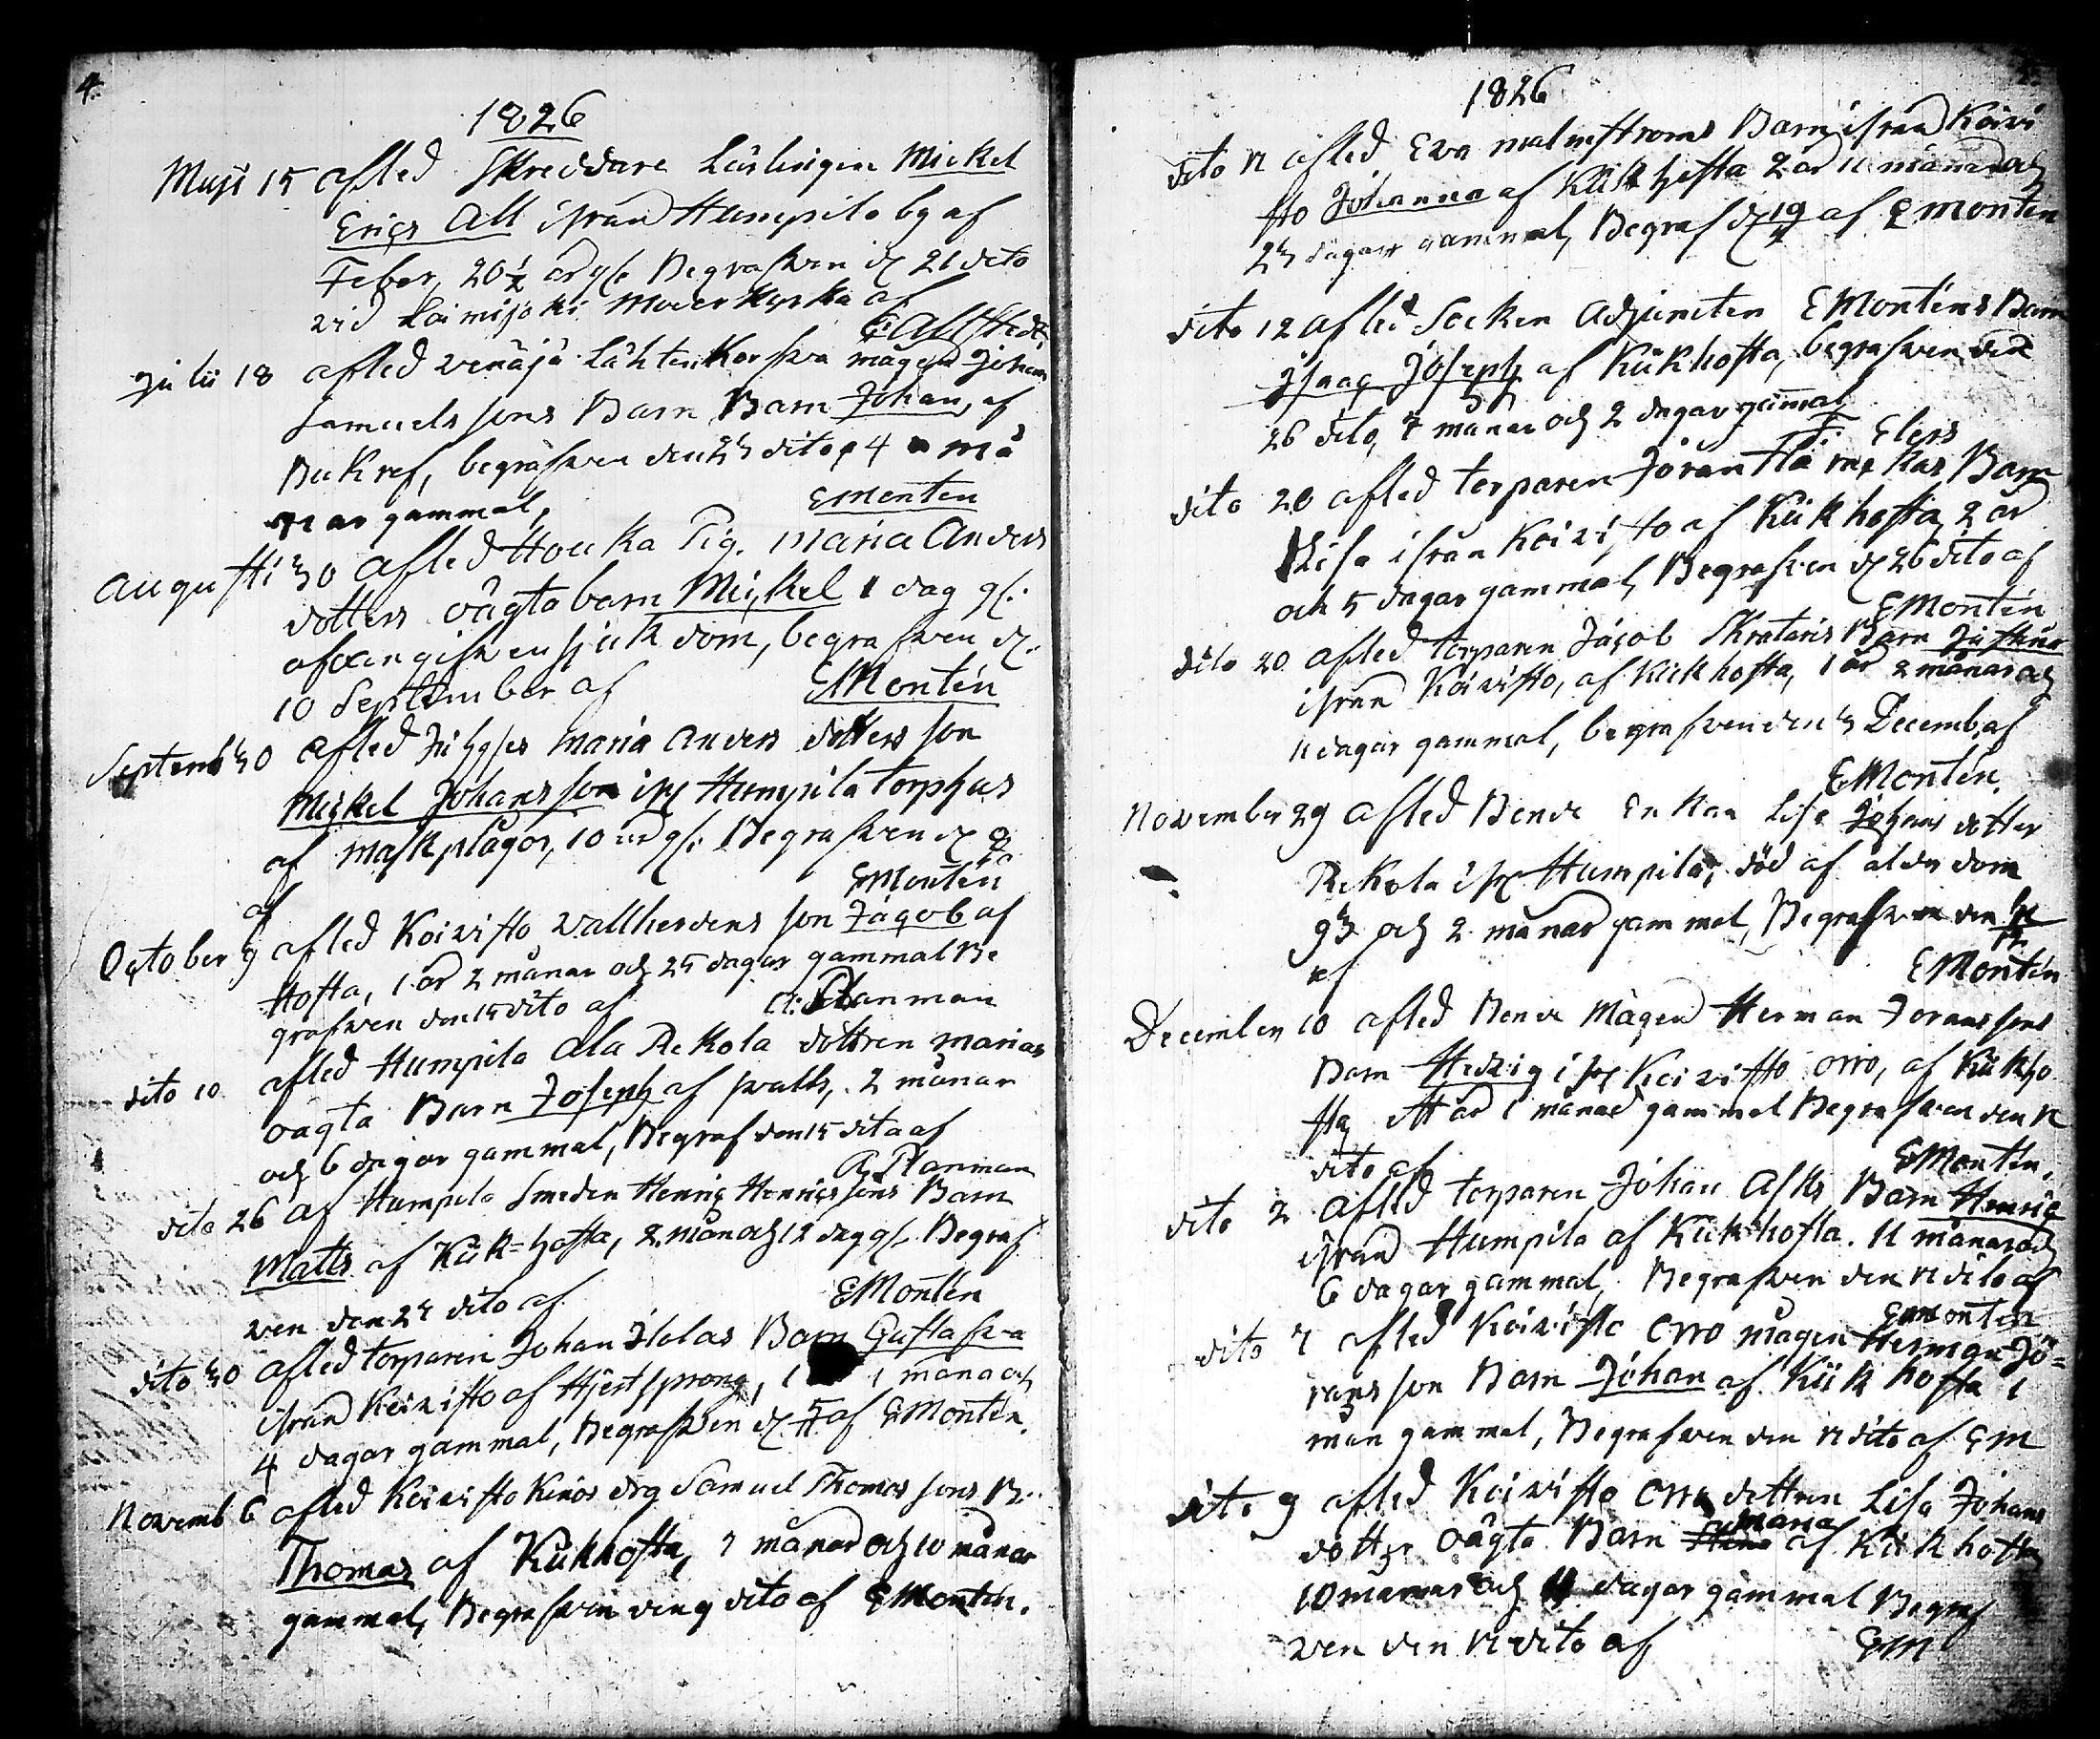 4.
1826
Maji 15 afled Skreddare Lärlingen Mickel
Erics All ifrån Humpila by af
Feber, 20 1/2 år gl. Begrafven d. 21 dito
vid Loimijoki Moderkyrka af
E: Allstedt
Julii 18 afled venäjä Lähtenkorfva mågen Johan
Samuelssons Barn Barn Johan, af
Bukref, begrafven den 23 dito, 4 må
nar gammal, EMontén
Augusti 30 afled Houka Pig. Maria Anders
dotters oägta barn Mickel 1 dag gl.
af oangifven sjukdom, begrafven d.
10 September af EMontén
Septemb 30 afled Maria Anders dotters son
Mickel Johansson ifr. Humpila torphus
af maskplågor, 10 år gl. Begrafven d. 8
af EMontén
October 9 afled Koivisto Vallherdens son Jacob af
Hosta, 1 år 2 månar och 25 dagar gammal Be
grafven den 15 dito af A: Planman
dito 10 afled Humpila Ala Rekola dottren Marias
oägta Barn Joseph af svalls, 2 månar
och 6 dagar gammal, Begraf den 15 dito af
A. Planman
dito 26 af Humpila Smeden Henric Henricssons Barn
Matts af Kik=hosta, 2 mån och 12 dag gl. Begraf
ven den 29 dito af EMontén
dito 30 afled torparen Johan Ilolas Barn Gustafva
ifrån Koivisto af Hjertsprång, 1 1 måna och
4 dagar gammal, Begrafven d. 5 af EMontén.
Novemb 6 afled Koivisto Kinos drg Samuel Thomas sons B.
Thomas af Kikhosta, 7 månar och 10 månar
gammal, Begrafven den 9 dito af EMontén.
1826
dito 11 afled Eva Malmstroms Barn ifrån Koivi
sto Johanna af Kikhosta 2 år 11 månar och
23 dagar gammal, Begraf d. 19 af EMontén
dito 12 afled Socken Adjuncten EMonténs Barn
Isaac Joseph af Kikhosta, begrafven den
26 dito, 7 månar och 2 dagar gammal
F: Elers
dito 20 afled torparen Jöran Barn
Lisa ifrån Koivisto af Kikhosta, 2 år
och 5 dagar gammal, Begrafven d. 26 dito af
EMontén
dito 20 afled torparen Jacob Skrataris Barn Justina
ifrån Koivisto, af Kikhosta, 1 år 2 månar och
11 dagar gammal, begrafven den 3 Decemb. af
EMontén.
November 29 afled Bonde Enkan Lisa Johans dotter
Rekola ifr. Humpila, död af ålderdom
93 och 2 månar gammal, Begrafven den
af EMontén
December 10 afled Bonde Mågen Herman Joransons
Barn Hedvig ifr. Koivisto Orro, af Kikho
sta, ett år 1 månad gammal Begrafven den 17
dito af EMontén.
dito 2 afled torparen Johan Asks Barn Henric
ifrån Humpila af Kikhosta. 11 månar och
6 dagar gammal, Begrafven den 17 dito af
EMontén
dito 7 afled Koivisto Orro mågen Herman Jö=
rans son Barn Johan af Kikhosta 1
mån gammal, Begrafven den 17 dito af EM
dito 9 afled Koivisto Orro dottren Lisa Johans
dotter oägta Barn Maria af Kikhosta
10 månar och 11 dagar gammal Begraf
ven den 17 dito af EM